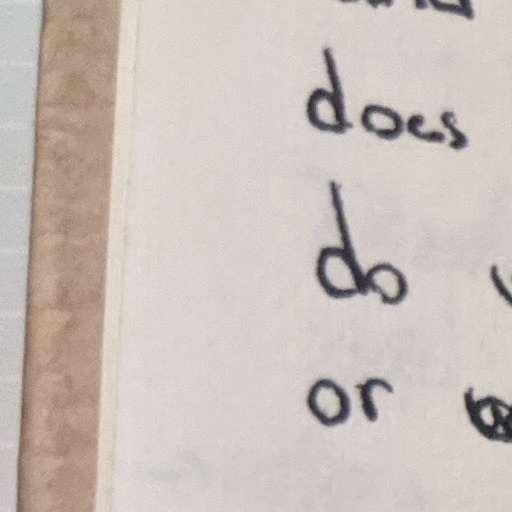 does
do
or